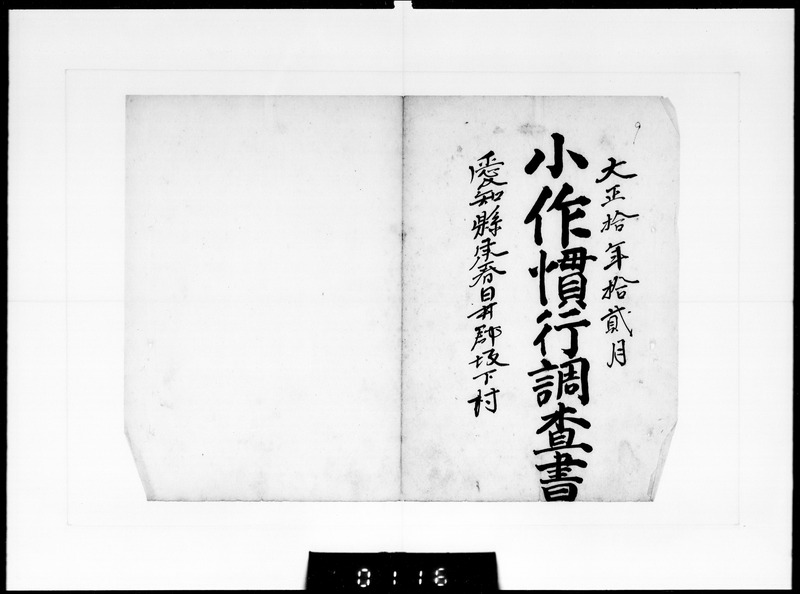 大正拾年拾貳月
小作慣行調査書
愛知縣東春日井郡坂下村
0116